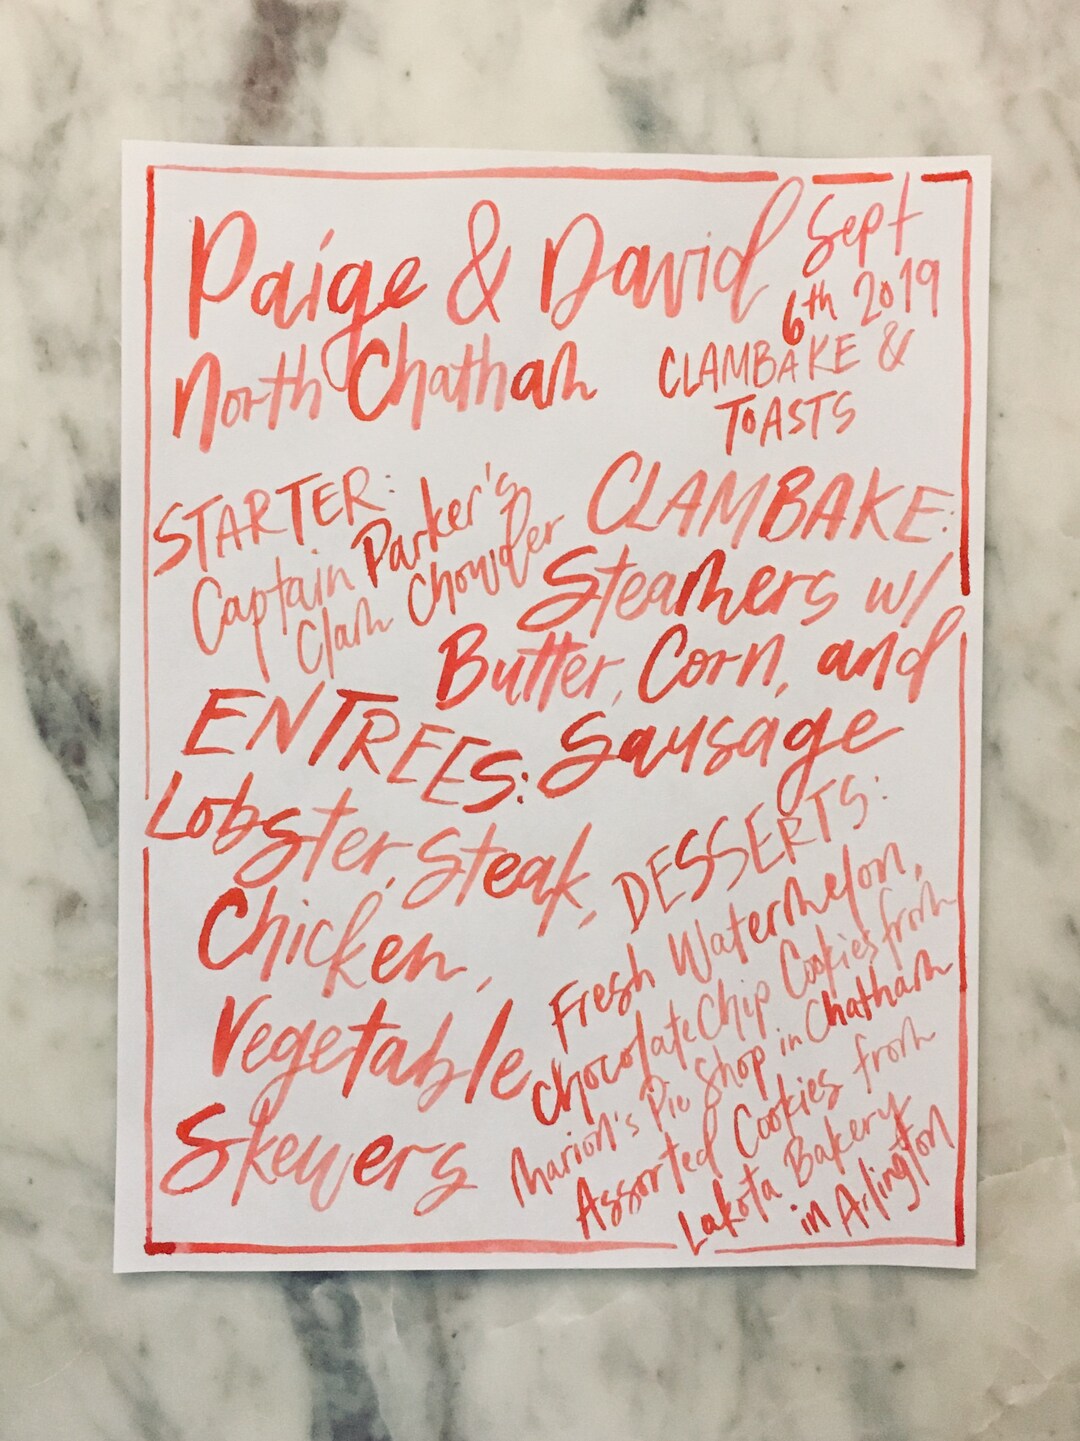 Paige & David
North Chatham
Sept
6th 2019
CLAMBAKE &
TOASTS
STARTER:
Captain Parker's
Clam Chowder
CLAMBAKE:
Steamers w/
Butter, Corn, and
Sausage
ENTREES:
Lobster, Steak,
Chicken,
Vegetable
Skewers
DESSERTS:
Fresh Watermelon,
Chocolate Chip Cookies from
Marion's Pie Shop in Chatham
Assorted Cookies from
Lakota Bakery
in Arlington